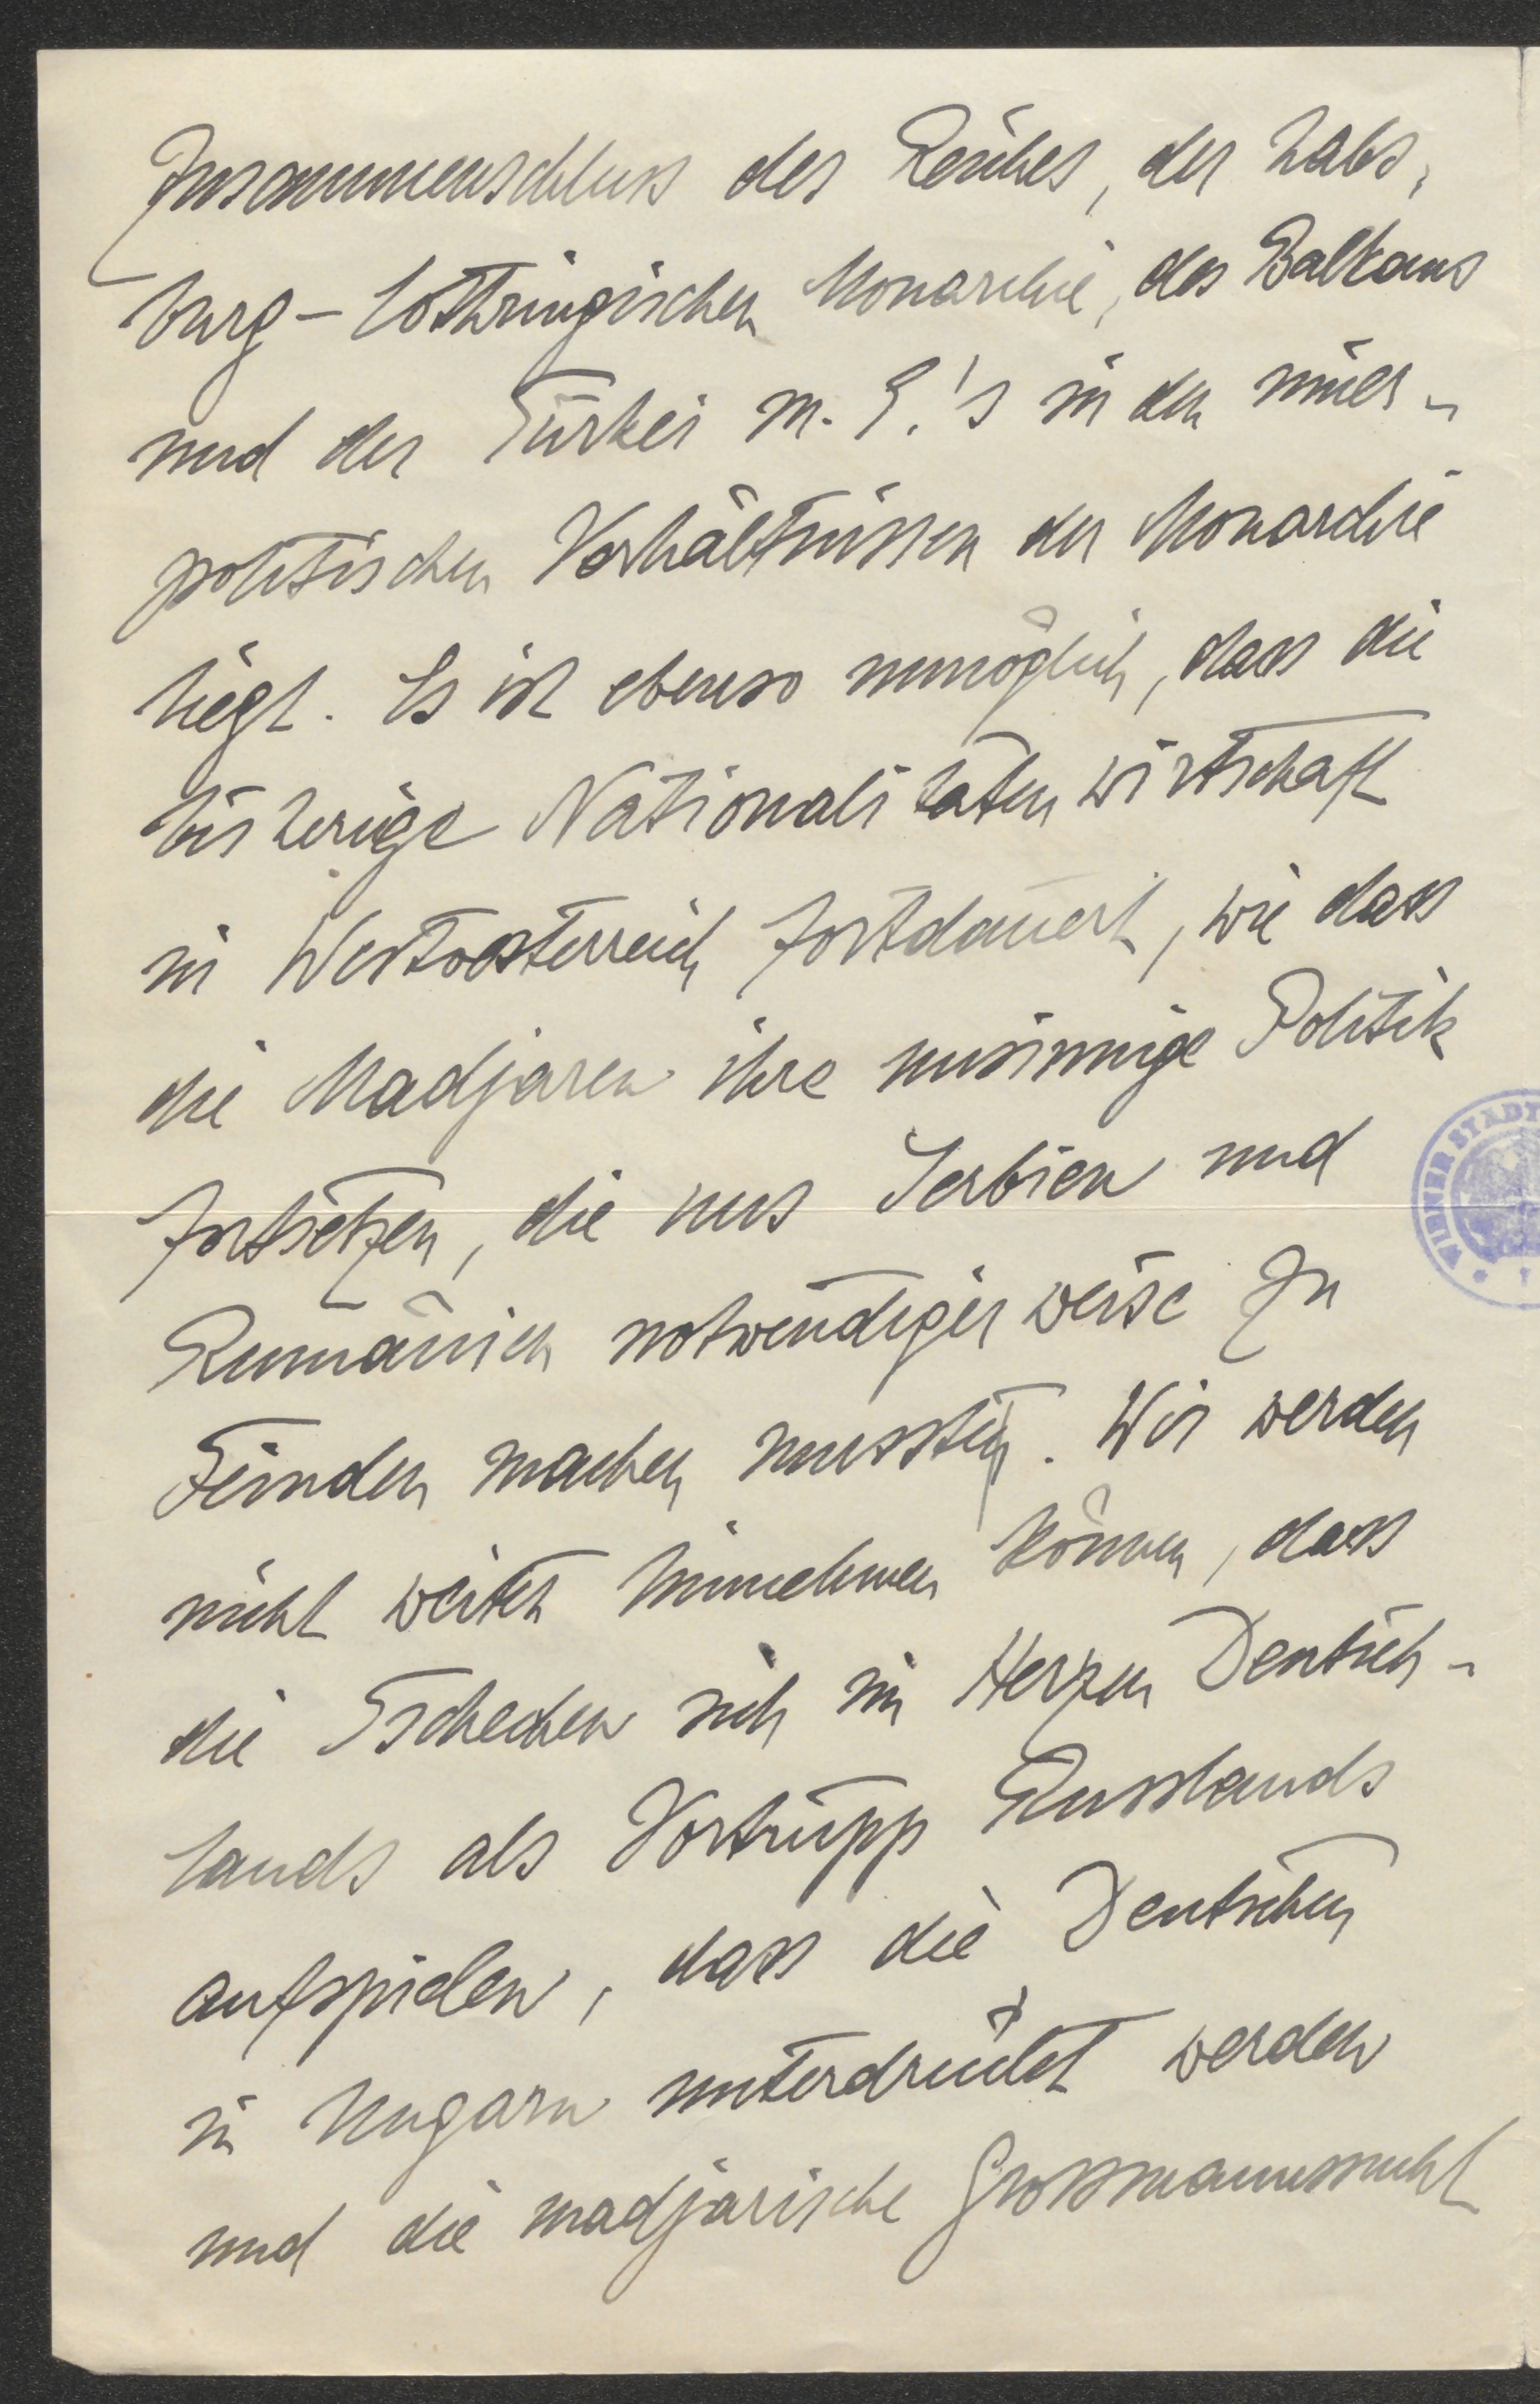 Zusammenschluss des Reiches, der habs-
burg-lothringischen Monarchie, des Balkans
und der Türkei m. E.'s in den inner-
politischen Verhältnissen der Monarchie
liegt. Es ist ebenso unmöglich, dass die
bisherige Nationalitätenwirtschaft
in Westoesterreich fortdauert, wie dass
die Madjaren ihre unsinnige Politik
fortsetzen, die uns Serbien und
Rumänien notwendigerweise zu
Feinden machen musste. Wir werden
nicht weiter hinnehmen können, dass
die Tschechen sich im Herzen Deutsch-
lands als Vortrupp Russlands
aufspielen, dass die Deutschen
in Ungarn unterdrückt werden
und die madjarische Grossmannssucht
WIENER STADT